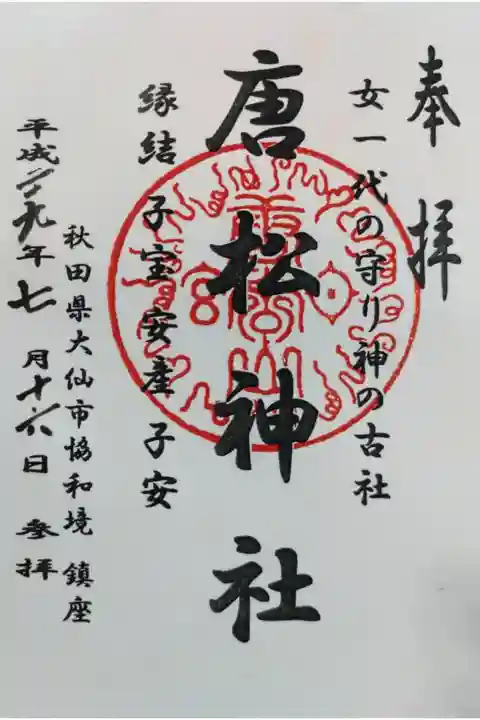 奉拝
女一代の守り神の古社
唐松神社
縁結 子宝安産 子安
秋田県大仙市協和境 鎮座
平成二十九年七月十六日 参拝